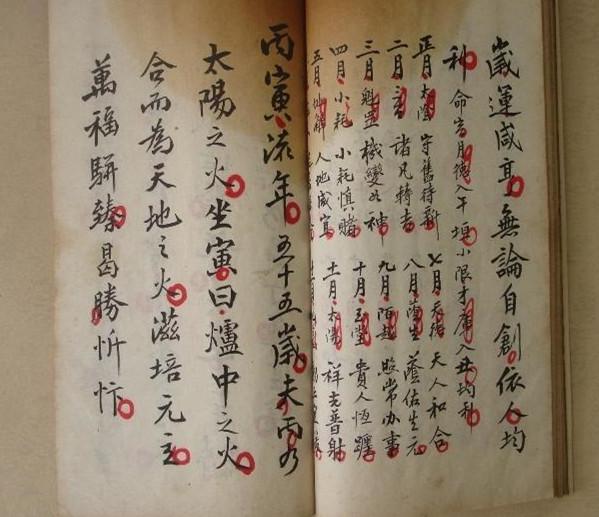 歲運咸亨無論自創依人均
利命宮月德入午垣小限才庫入丑均利
正月太陰守舊待新 七月天德天人和合
二月 諸凡轉吉 八月蔭生蔭佑生元
三月魁罡機變如神 九月陌越照常办事
四月小耗小耗慎賭 十月玉堂貴人恆躔
五月 人地咸宜 十一月太陽祥光普射
丙寅流年五十五歲夫丙乃
太陽之火坐寅曰爐中之火
合而為天地之火滋培元主
萬福駢臻曷勝忻忭